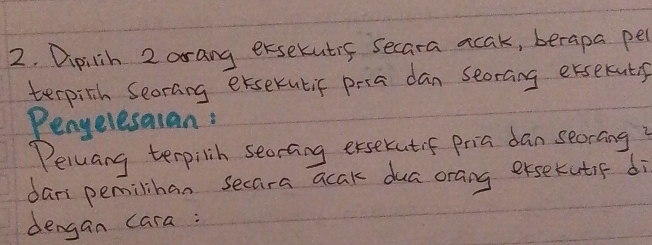 2. Dipilih 2 orang eksekutif secara acak, berapa pel
terpilih seorang eksekutif pria dan seorang eksekutif
Penyelesaian:
Peluang terpilih seorang eksekutif pria dan seorang
dari pemilihan secara acak dua orang eksekutif di
dengan cara :